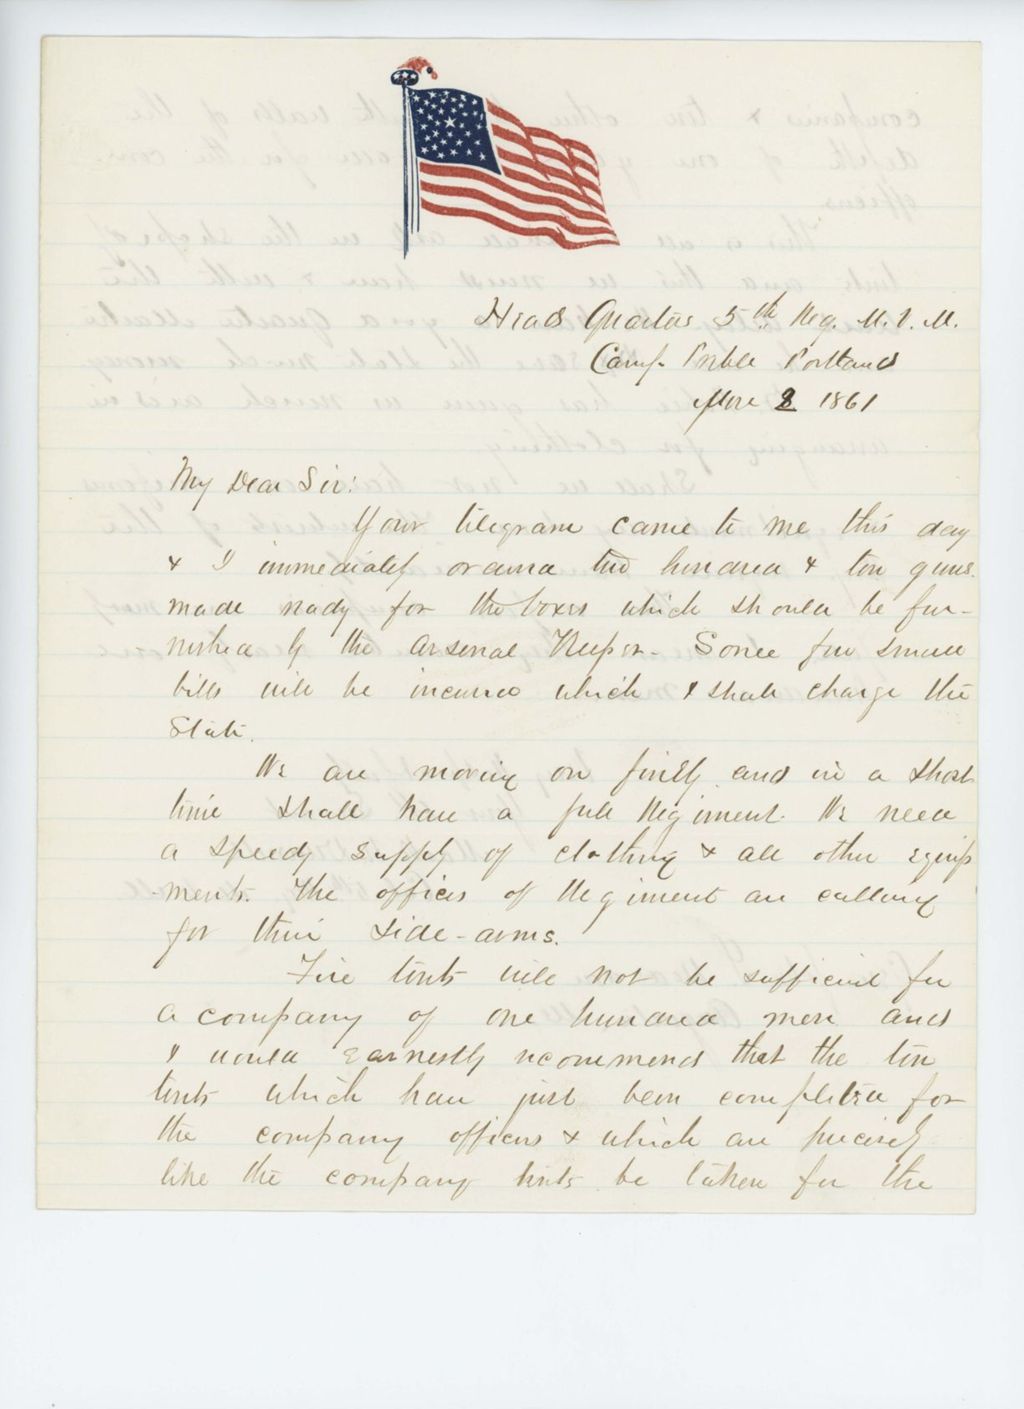 Head Quarters 5th Reg. M. V. M.
Camp Preble Portland
June 8 1861
My Dear Sir:
Your telegram came to me this day
& I immediately ordered two hundred & ten guns
made ready for the boxes which should be fur-
nished by the Arsenal Keeper - Some few small
bills will be incurred which I shall charge the
State.
We are moving on finely and in a short
time shall have a full Regiment. We need
a speedy supply of clothing & all other equip
ments. The officers of Regiment are calling
for their side-arms.
Five tents will not be sufficient for
a company of one hundred men and
I would earnestly recommend that the ten
tents which have just been completed for
the company officers & which are precisely
like the company tents be taken for the